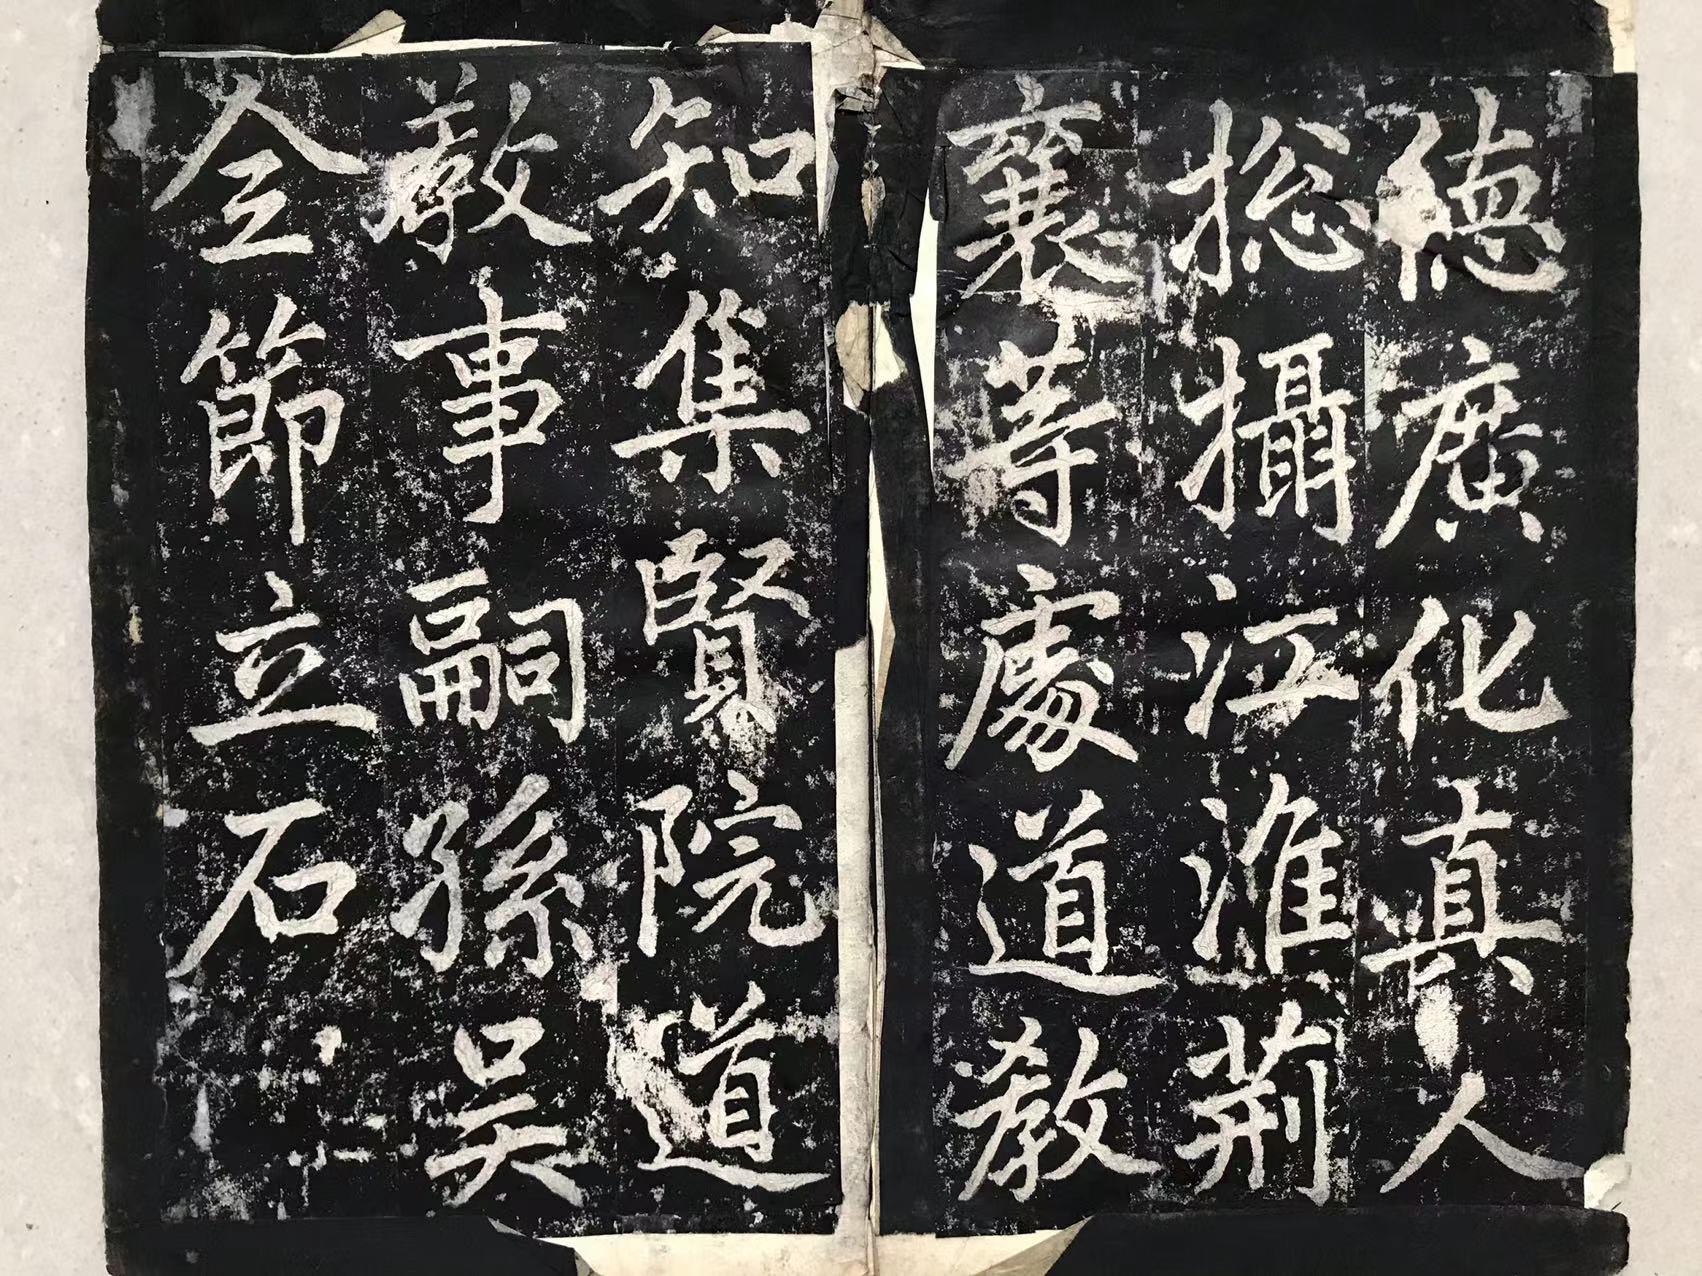 德廣化真人
捴攝江淮荊
襄䓁處道教
知集賢院道
教事嗣孫吳
全節立石